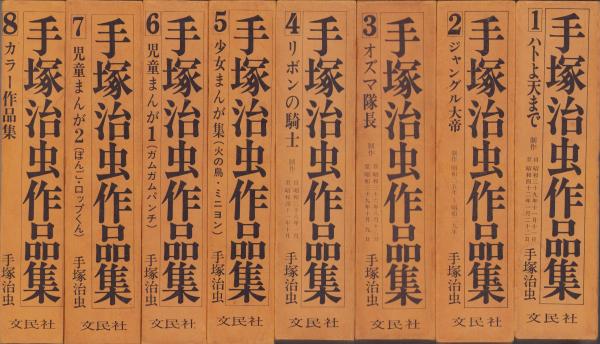 1 ハトよ天まで
手塚治虫作品集
手塚治虫
文民社
2 ジャングル大帝
手塚治虫作品集
手塚治虫
文民社
3 オズマ隊長
手塚治虫作品集
手塚治虫
文民社
4 リボンの騎士
手塚治虫作品集
手塚治虫
文民社
5 少女まんが集(火の鳥・ミニヨン)
手塚治虫作品集
手塚治虫
文民社
6 児童まんが1(ガムガムパンチ)
手塚治虫作品集
手塚治虫
文民社
7 児童まんが2(ぽんご・ロップくん)
手塚治虫作品集
手塚治虫
文民社
8 カラー作品集
手塚治虫作品集
手塚治虫
文民社